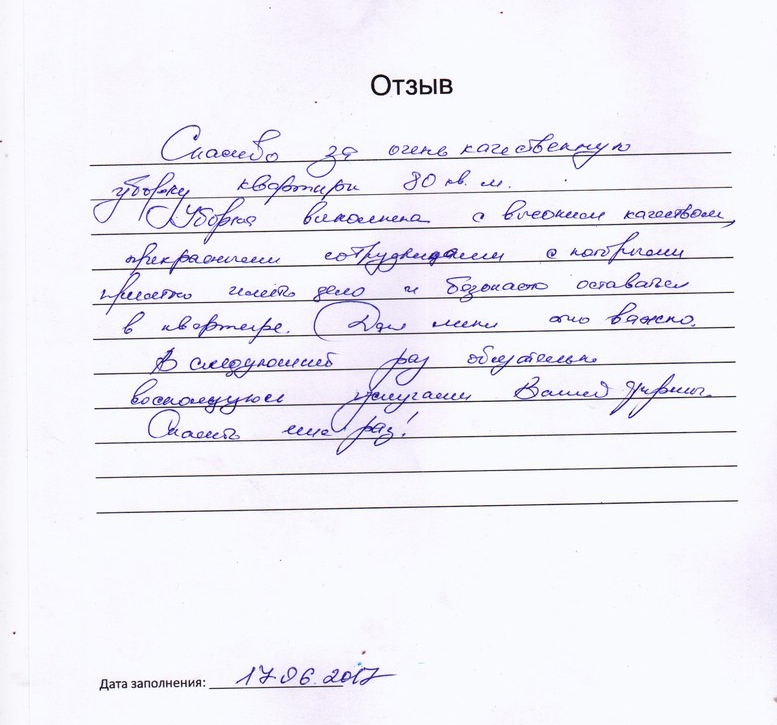 Отзыв
Спасибо за очень качественную
уборку квартиры 80 кв. м.
Уборка выполнена с высоким качеством,
прекрасными сотрудниками с которыми
приятно иметь дело и безопасно оставаться
в квартире. Для меня это важно.
В следующий раз обязательно
воспользуюсь услугами Вашей фирмы.
Спасибо еще раз!
Дата заполнения: 17.06.2017